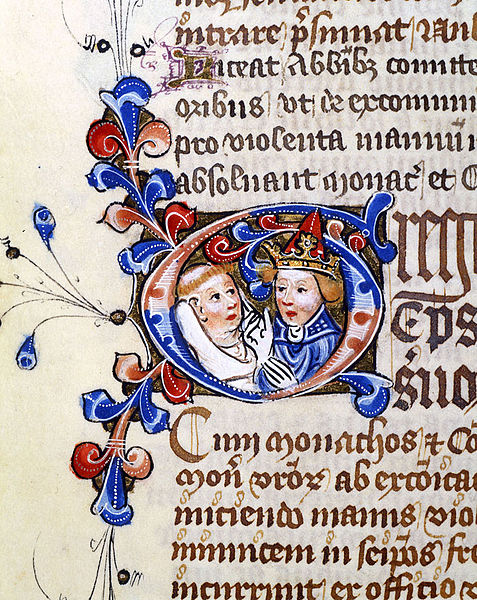 intrare p̄sumat
liceat abbib̄z comitte
oribus ut de excommuni
pro violenta manuū
absoluant monac̄ et
Greg
Ep̄s
suo
Cum monachos et Co
mon̄ vr̄oꝝ ab exc̄oica
miciendo manus vio
inuicem in seip̄os fr
incurrunt ex officio